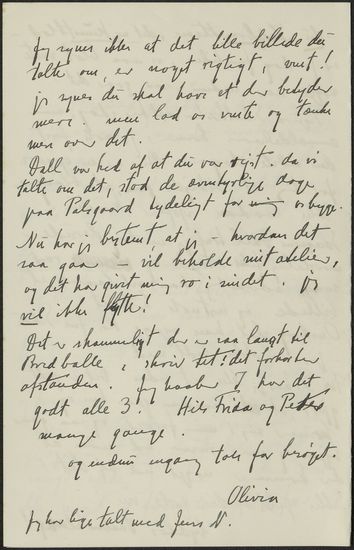 Jeg synes ikke at det lille billede du
talte om, er noget rigtigt, vent!
jeg synes du skal have et der betyder
mere. men lad os vente og tænke
men over det.
ked af at du var rejst. da vi
talte om det, stod de eventyrlige dage
paa Palsgaard tydeligt for mig
Nu har jeg bestemt, at jeg – hvordan det
saa gaar – vil beholde mit atelier,
og det har givet mig ro i sindet. jeg
vil ikke flytte!
Det er skammeligt der er saa langt til
Bredballe, skriv tit! det forkorter
afstanden. Jeg haaber I har det
godt alle 3! Hils Frida og Peter
mange gange.
og endnu engang tak for besøget.
Olivia
Jeg har lige talt med Jens N.